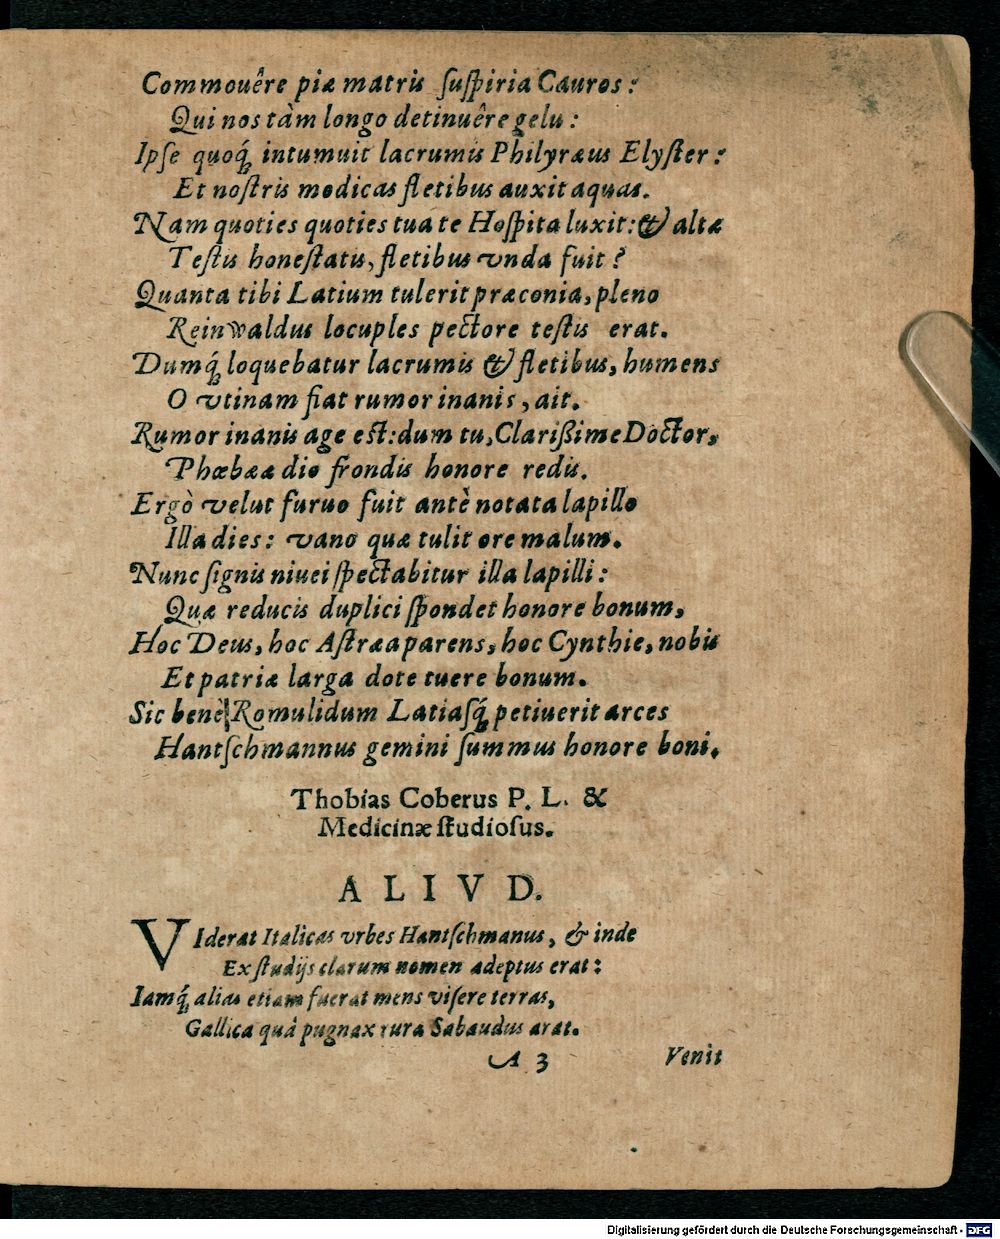 Commouêre piæ matris ſuſpiria Cauros:
Qui nos tàm longo detinuêre gelu:
Ipſe quoq́; intumuit lacrumis Philyræus Elyſter:
Et noſtris medicas fletibus auxit aquas.
Nam quoties quoties tua te Hoſpita luxit: & altæ
Teſtis honeſtatis, fletibus vnda fuit?
Quanta tibi Latium tulerit præconia, pleno
Reinwaldus locuples pectore teſtis erat.
Dumq́; loquebatur lacrumis & fletibus, humens
O vtinam fiat rumor inanis, ait.
Rumor inanis age est: dum tu, Clarißime Doctor,
Phœbææ dio frondis honore redis.
Ergò velut furuo fuit antè notata lapillo
Illa dies: vano quæ tulit ore malum.
Nunc ſignis niuei ſpectabitur illa lapilli:
Quæ reducis duplici ſpondet honore bonum,
Hoc Deus, hoc Aſtræa parens, hoc Cynthie, nobis
Et patriæ larga dote tuere bonum.
Sic benè Romulidum Latiaſq́; petiuerit arces
Hantſchmannus gemini ſummus honore boni.
Thobias Coberus P. L. &
Medicinæ ſtudioſus.
ALIVD.
VIderat Italicas vrbes Hantſchmanus, & inde
Ex ſtudijs clarum nomen adeptus erat:
Iamq́; alias etiam fuerat mens viſere terras,
Gallica quà pugnax rura Sabaudus arat.
A 3 Venit
Digitalisierung gefördert durch die Deutsche Forschungsgemeinschaft - DFG